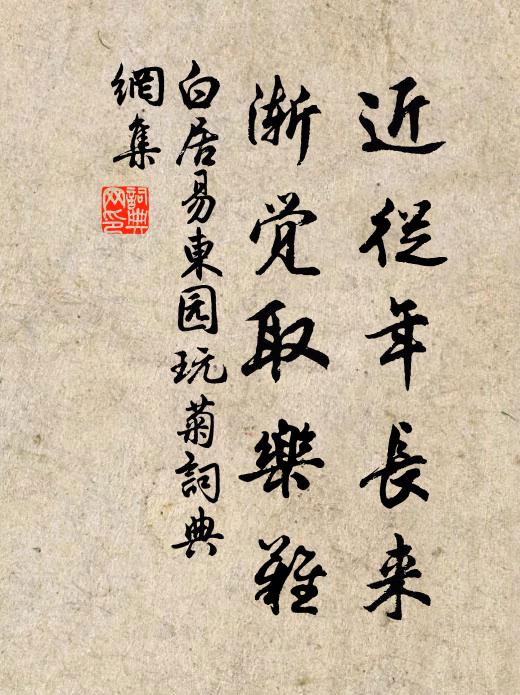 近從年長来
漸覺取樂難
白居易東园玩菊詞典
網集
詞典網印